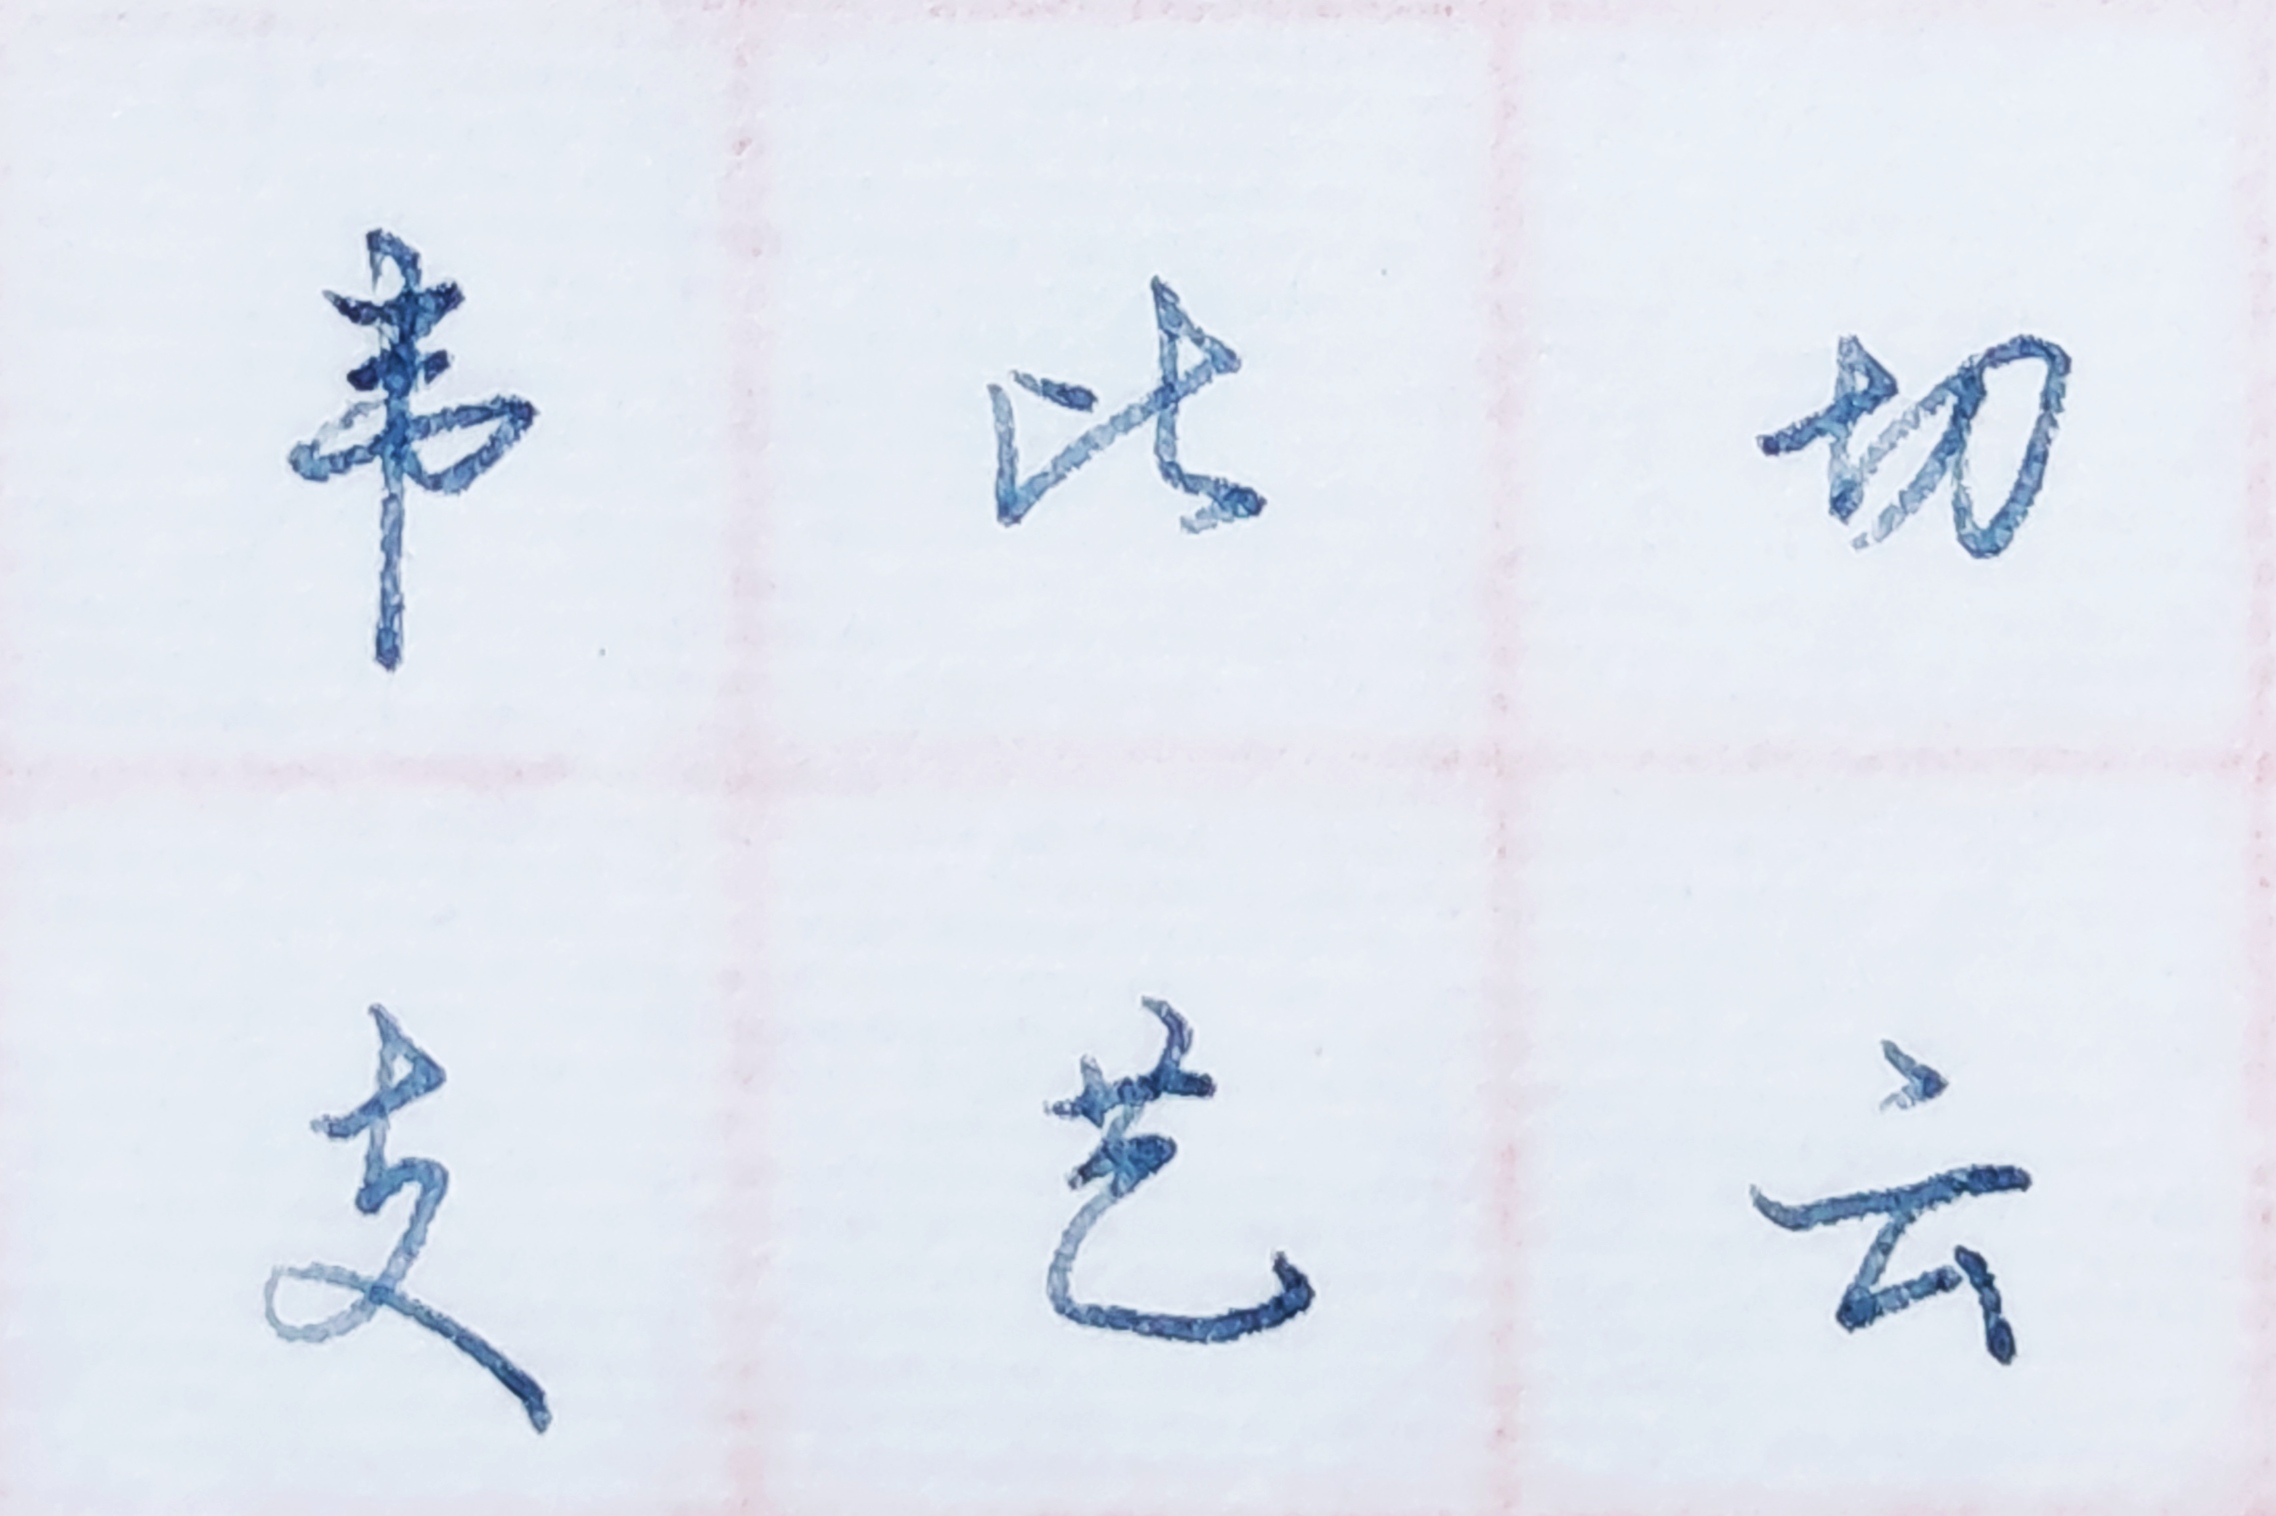 韦比切
支艺云